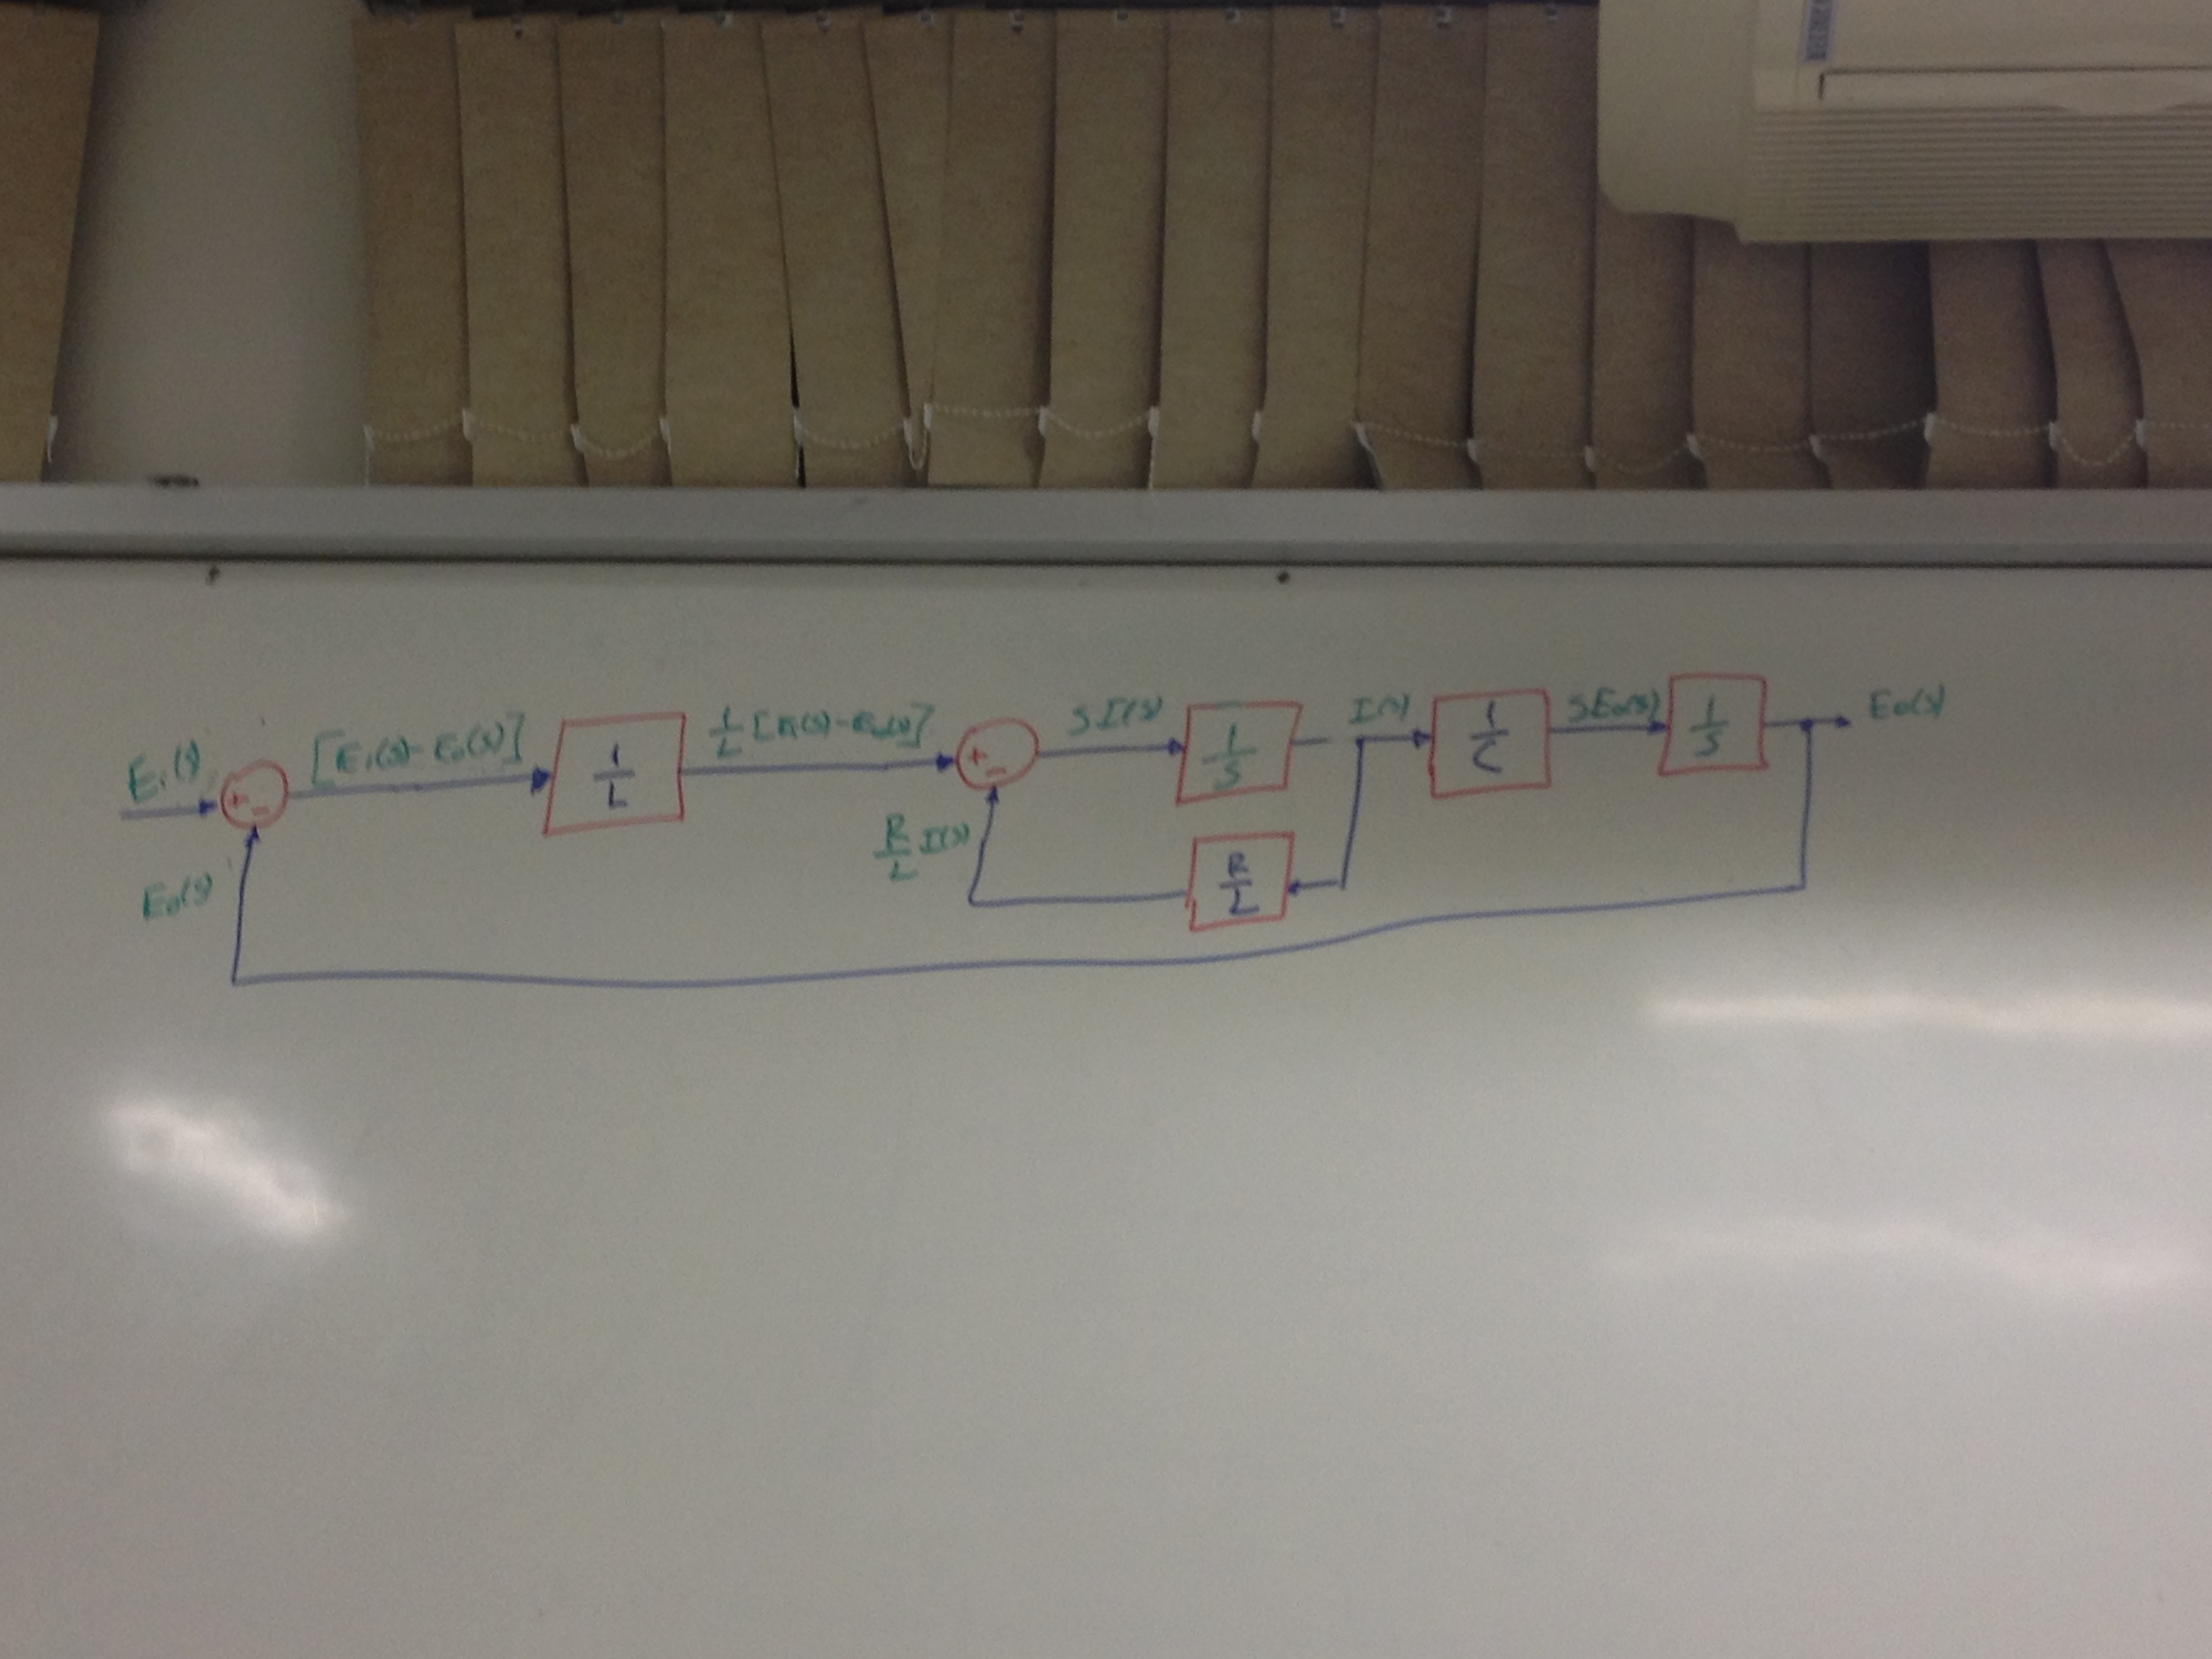 Ei(s)
+
-
[Ei(s)-Eo(s)]
1/L
1/L [Ei(s)-Eo(s)]
+
-
SI(s)
1/S
I(s)
1/C
SEo(s)
1/S
Eo(s)
R/L I(s)
R/L
Eo(s)